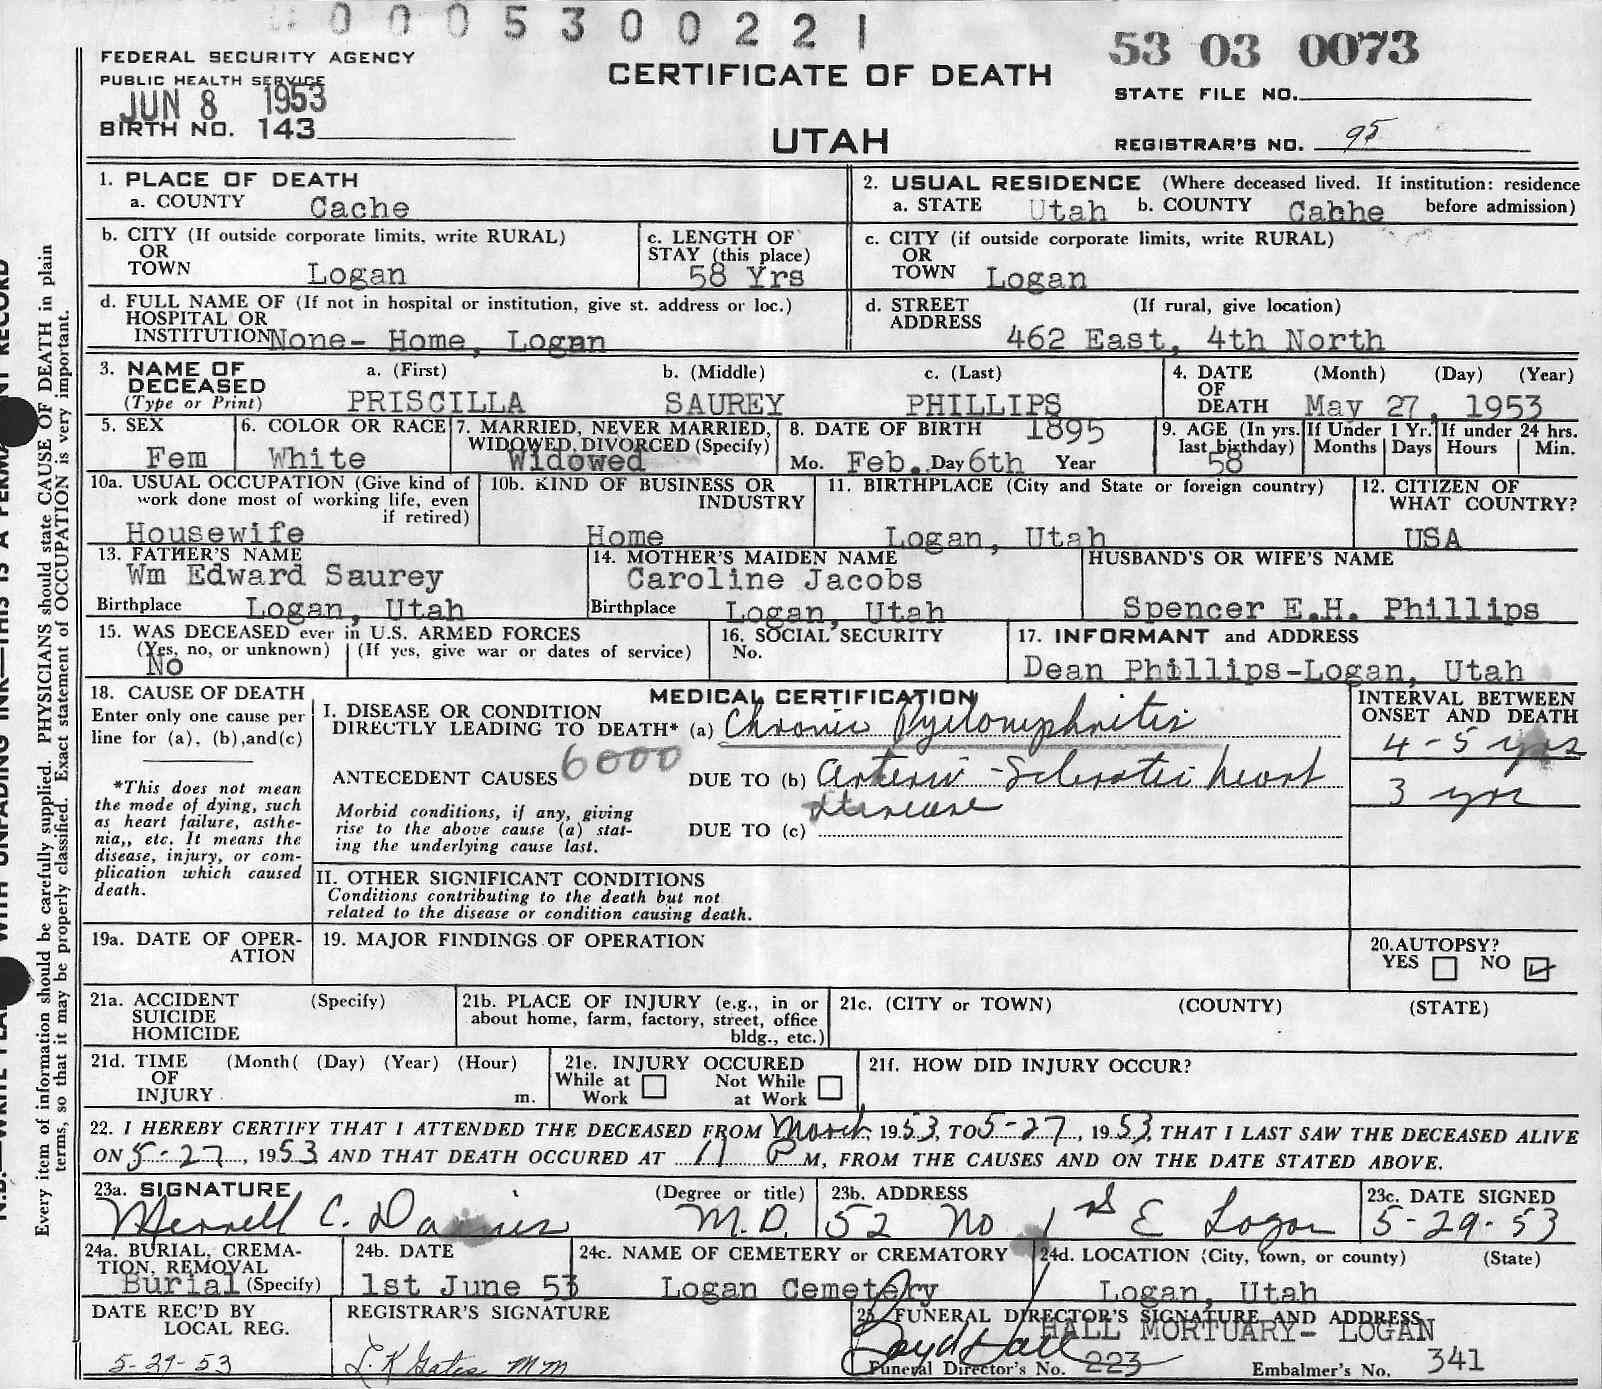 0005300221
53 03 0073
FEDERAL SECURITY AGENCY
PUBLIC HEALTH SERVICE
JUN 8 1953
BIRTH NO. 143
CERTIFICATE OF DEATH
UTAH
STATE FILE NO.
REGISTRAR'S NO. 95
1. PLACE OF DEATH
a. COUNTY Cache
2. USUAL RESIDENCE (Where deceased lived. If institution: residence
a. STATE Utah b. COUNTY Cahhe before admission)
b. CITY (If outside corporate limits, write RURAL)
OR
TOWN Logan
c. LENGTH OF
STAY (this place)
58 Yrs
c. CITY (if outside corporate limits, write RURAL)
OR
TOWN Logan
d. FULL NAME OF (If not in hospital or institution, give st. address or loc.)
HOSPITAL OR
INSTITUTION None- Home, Logan
d. STREET (If rural, give location)
ADDRESS 462 East, 4th North
3. NAME OF a. (First) b. (Middle) c. (Last)
DECEASED
(Type or Print) PRISCILLA SAUREY PHILLIPS
4. DATE (Month) (Day) (Year)
OF
DEATH May 27, 1953
5. SEX
Fem
6. COLOR OR RACE
White
7. MARRIED, NEVER MARRIED,
WIDOWED, DIVORCED (Specify)
Widowed
8. DATE OF BIRTH 1895
Mo. Feb. Day 6th Year
9. AGE (In yrs.
last birthday)
58
If Under 1 Yr.
Months Days
If under 24 hrs.
Hours Min.
10a. USUAL OCCUPATION (Give kind of
work done most of working life, even
if retired)
Housewife
10b. KIND OF BUSINESS OR
INDUSTRY
Home
11. BIRTHPLACE (City and State or foreign country)
Logan, Utah
12. CITIZEN OF
WHAT COUNTRY?
USA
13. FATHER'S NAME
Wm Edward Saurey
Birthplace Logan, Utah
14. MOTHER'S MAIDEN NAME
Caroline Jacobs
Birthplace Logan, Utah
HUSBAND'S OR WIFE'S NAME
Spencer E.H. Phillips
15. WAS DECEASED ever in U.S. ARMED FORCES
(Yes, no, or unknown) (If yes, give war or dates of service)
No
16. SOCIAL SECURITY
No.
17. INFORMANT and ADDRESS
Dean Phillips-Logan, Utah
18. CAUSE OF DEATH
Enter only one cause per
line for (a), (b),and(c)
*This does not mean
the mode of dying, such
as heart failure, asthe-
nia,, etc. It means the
disease, injury, or com-
plication which caused
death.
MEDICAL CERTIFICATION
I. DISEASE OR CONDITION
DIRECTLY LEADING TO DEATH* (a) Chronic Pyelonephritis
ANTECEDENT CAUSES 6000 DUE TO (b) Arterio-Sclerotic heart
disease
Morbid conditions, if any, giving
rise to the above cause (a) stat-
ing the underlying cause last.
DUE TO (c)
INTERVAL BETWEEN
ONSET AND DEATH
4-5 yrs
3 yrs
II. OTHER SIGNIFICANT CONDITIONS
Conditions contributing to the death but not
related to the disease or condition causing death.
19a. DATE OF OPER-
ATION
19. MAJOR FINDINGS OF OPERATION
20.AUTOPSY?
YES NO
21a. ACCIDENT (Specify)
SUICIDE
HOMICIDE
21b. PLACE OF INJURY (e.g., in or
about home, farm, factory, street, office
bldg., etc.)
21c. (CITY or TOWN) (COUNTY) (STATE)
21d. TIME (Month( (Day) (Year) (Hour)
OF
INJURY m.
21e. INJURY OCCURED
While at Work
Not While at Work
21f. HOW DID INJURY OCCUR?
22. I HEREBY CERTIFY THAT I ATTENDED THE DECEASED FROM March, 1953, TO 5-27, 1953, THAT I LAST SAW THE DECEASED ALIVE
ON 5-27, 1953 AND THAT DEATH OCCURED AT 11 P M, FROM THE CAUSES AND ON THE DATE STATED ABOVE.
23a. SIGNATURE (Degree or title)
Merrell C. Daines M.D.
23b. ADDRESS
52 No 1st E Logan
23c. DATE SIGNED
5-29-53
24a. BURIAL, CREMA-
TION, REMOVAL
Burial (Specify)
24b. DATE
1st June 53
24c. NAME OF CEMETERY or CREMATORY
Logan Cemetery
24d. LOCATION (City, town, or county) (State)
Logan, Utah
DATE REC'D BY
LOCAL REG.
5-29-53
REGISTRAR'S SIGNATURE
25. FUNERAL DIRECTOR'S SIGNATURE AND ADDRESS
HALL MORTUARY- LOGAN
Boyd Hall
Funeral Director's No. 223 Embalmer's No. 341
Every item of information should be carefully supplied. PHYSICIANS should state CAUSE OF DEATH in plain
terms, so that it may be properly classified. Exact statement of OCCUPATION is very important.